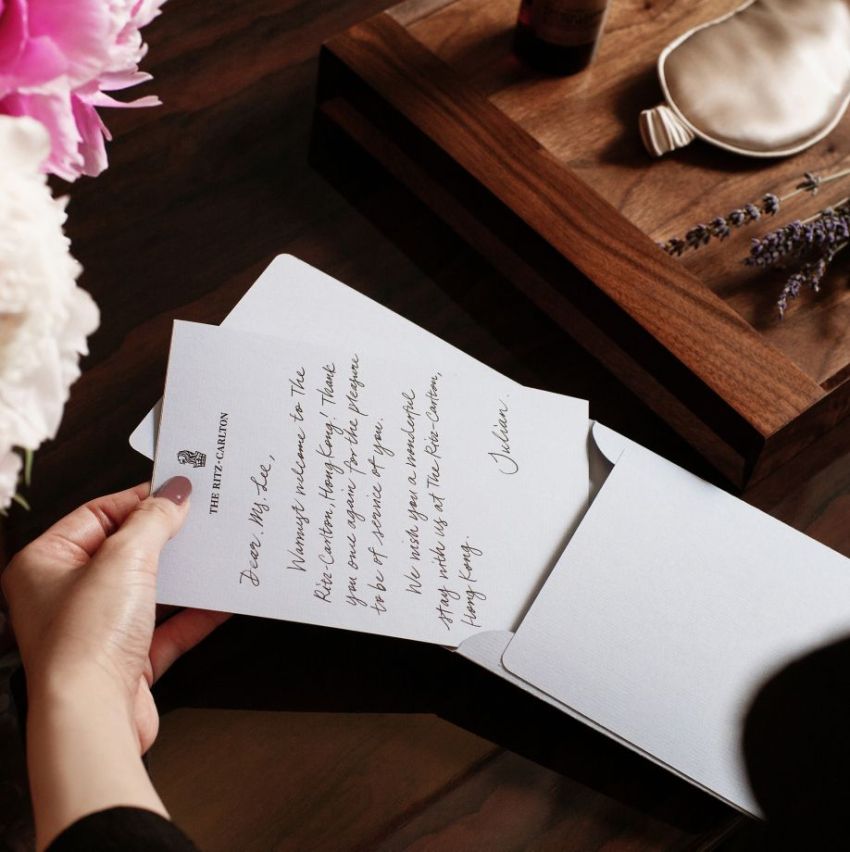 THE RITZ-CARLTON
Dear. Ms. Lee,
Warmest welcome to The
Ritz-Carlton, Hong Kong! Thank
you once again for the pleasure
to be of service of you.
We wish you a wonderful
stay with us at The Ritz-Carlton,
Hong Kong.
Julian.